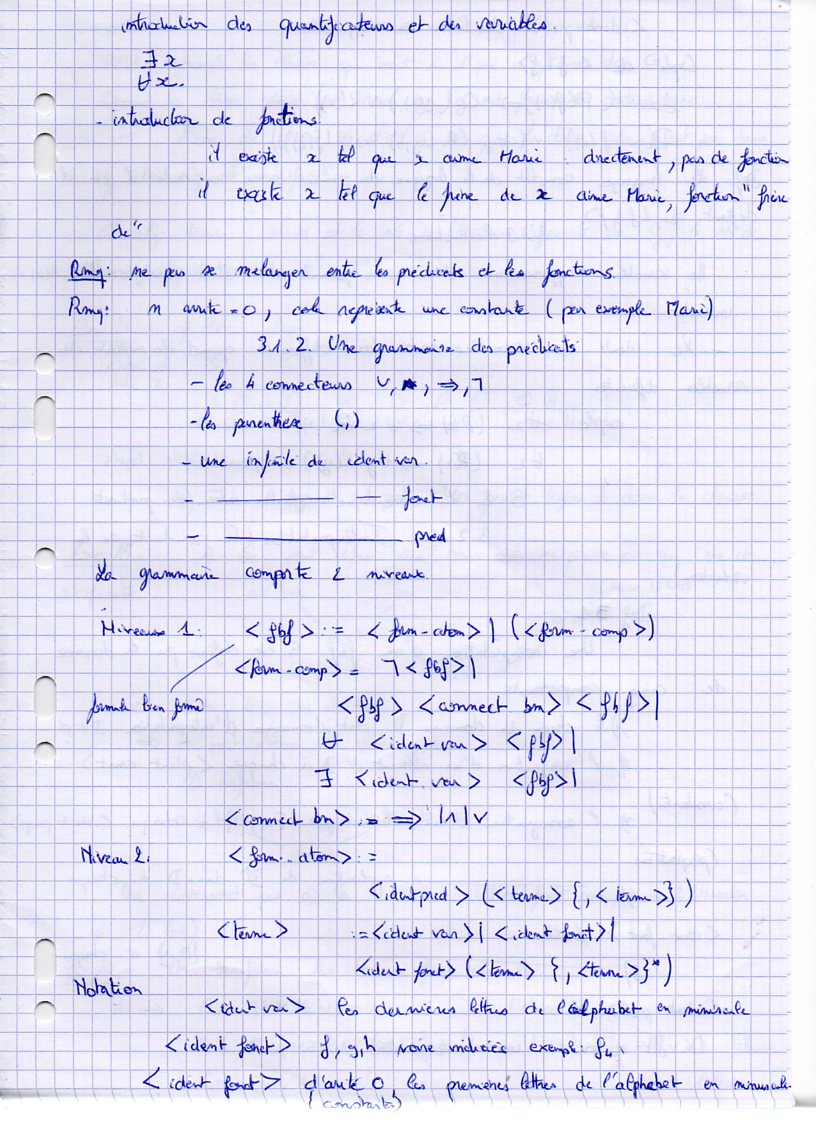 introduction des quantificateurs et des variables.
∃ x
∀ x.
- introduction de fonctions
il existe x tel que x aime Marie : directement, pas de fonction
il existe x tel que le frère de x aime Marie, fonction "frère
de"
Rmq: ne pas se melanger entre les prédicats et les fonctions.
Rmq: n arité = 0, cela représente une constante (par exemple Marie)
3.1.2. Une grammaire des prédicats
- les 4 connecteurs ∨, ∧, ⇒, ¬
- les parenthese (,)
- une infinité de ident var.
- ———— — fonct
- ———————— pred
La grammaire comporte 2 niveaux.
Niveau 1: <fbf> := <form-atom> | (<form-comp>)
<form-comp> = ¬ <fbf> |
formule bien formé <fbf> <connect bin> <fbf> |
∀ <ident var> <fbf> |
∃ <ident var> <fbf> |
<connect bin> := ⇒ | ∧ | ∨
Niveau 2: <form-atom> :=
<ident pred> (<terme> {, <terme>})
<terme> := <ident var> | <ident fonct> |
<ident fonct> (<terme> {, <terme>}*)
Notation
<ident var> les dernières lettres de l'alphabet en miniscule
<ident fonct> f, g, h voire indiciés exemple: f4.
<ident fonct> d'arité 0, les premières lettres de l'alphabet en minuscule
(constante)